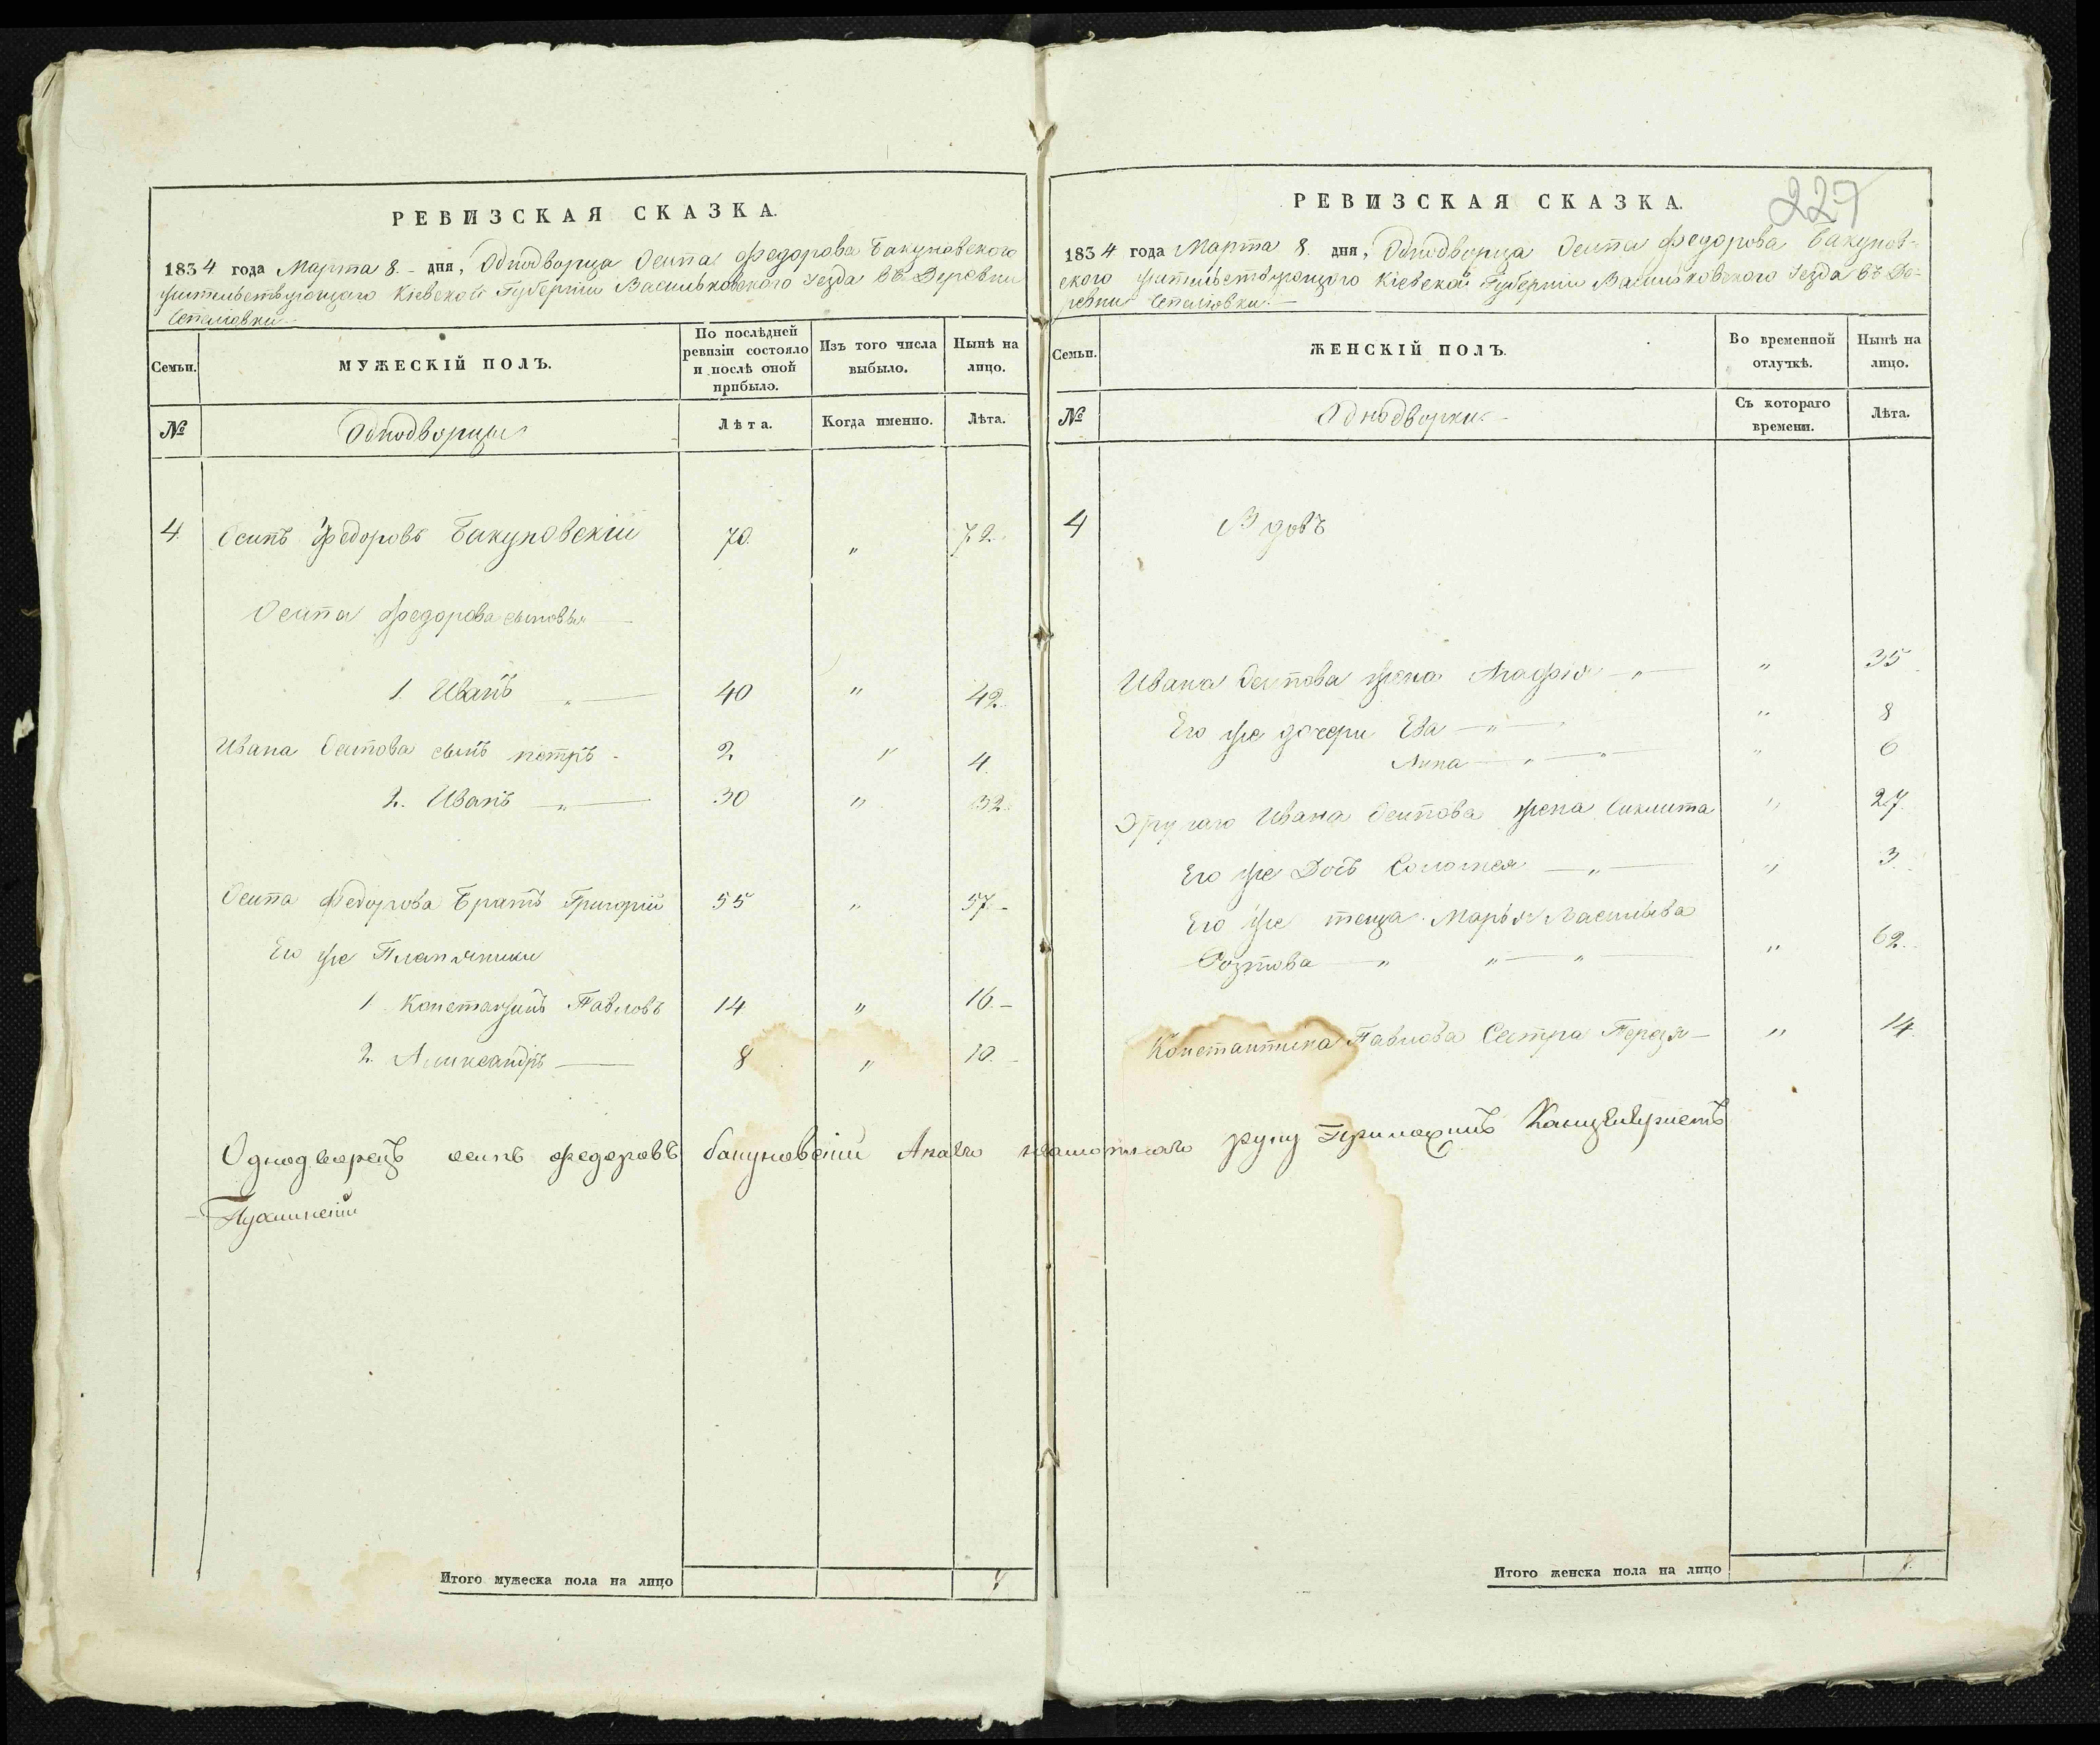 РЕВИЗСКАЯ СКАЗКА.
1834 года Марта 8.- дня, Однодворца Осипа Федорова Бакуновского
жительствующаго Кіевской Губерніи Васильковского уезда въ Деревни
Семьи.
МУЖЕСКІЙ ПОЛЪ.
По послѣдней ревизіи состояло и послѣ оной прибыло.
Изъ того числа выбыло.
Нынѣ на лицо.
№
Однодворцы
Лѣта.
Когда именно.
Лѣта.
4. Осипъ Федоровъ Бакуновскій 70. " 72.
Осипа Федорова сыновья
1. Иванъ " 40 " 42.
Ивана Осипова сынъ петръ - 2. " 4.
2. Иванъ " 30 " 32.
Осипа Федорова Братъ Григорій 55 " 57.-
Его же Племяники
1. Констанцинъ Павловъ 14 " 16.-
2. Александръ 8 " 10.-
Однодворецъ осипъ федоровъ бакуновский Анаего неграмотнаго руку Приложилъ Канцеляристъ
Итого мужеска пола на лицо 7
РЕВИЗСКАЯ СКАЗКА.
227
1834 года Марта 8. дня, Однодворца Осипа Федорова Бакунов-
ского жительствующаго Кіевской Губерніи Васильковского уезда въ Де-
ревни
Семьи.
ЖЕНСКІЙ ПОЛЪ.
Во временной отлучкѣ.
Нынѣ на лицо.
№
Однодворки
Съ котораго времени.
Лѣта.
4 Вдовъ
Ивана Осипова жена Агафія " " 35
Его же дочери Ева " " 8
Анна " " " 6
Другаго Ивана Осипова жена Сиклита " 27.
Его же Дочъ Соломея " " 3.
Его же теща Марья Васильева
" " " " 62.
Константина Павлова Сестра Текля " 14.
Итого женска пола на лицо 7.